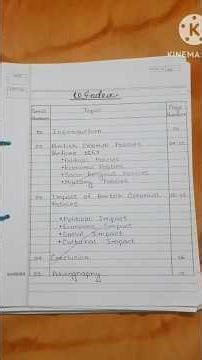 KINEMAS
Index
Serial Number
Topic
Page Number
01 Introduction 01
02 British Colonial Policies Before 1857
• Political Policies
• Economic Policies
• Socio Religious Policies
• Military Policies
03 Impact of British Colonial Policies
• Political Impact
• Economic Impact
• Social Impact
• Cultural Impact
04 Conclusion
05